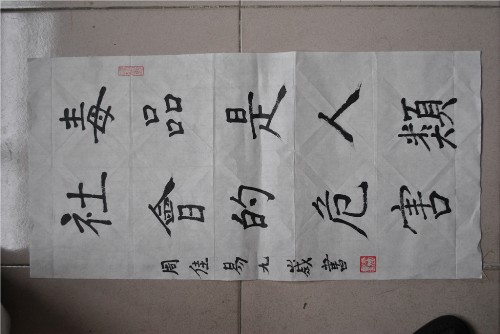 毒品是人類
社會的危害
周佳易九歲書